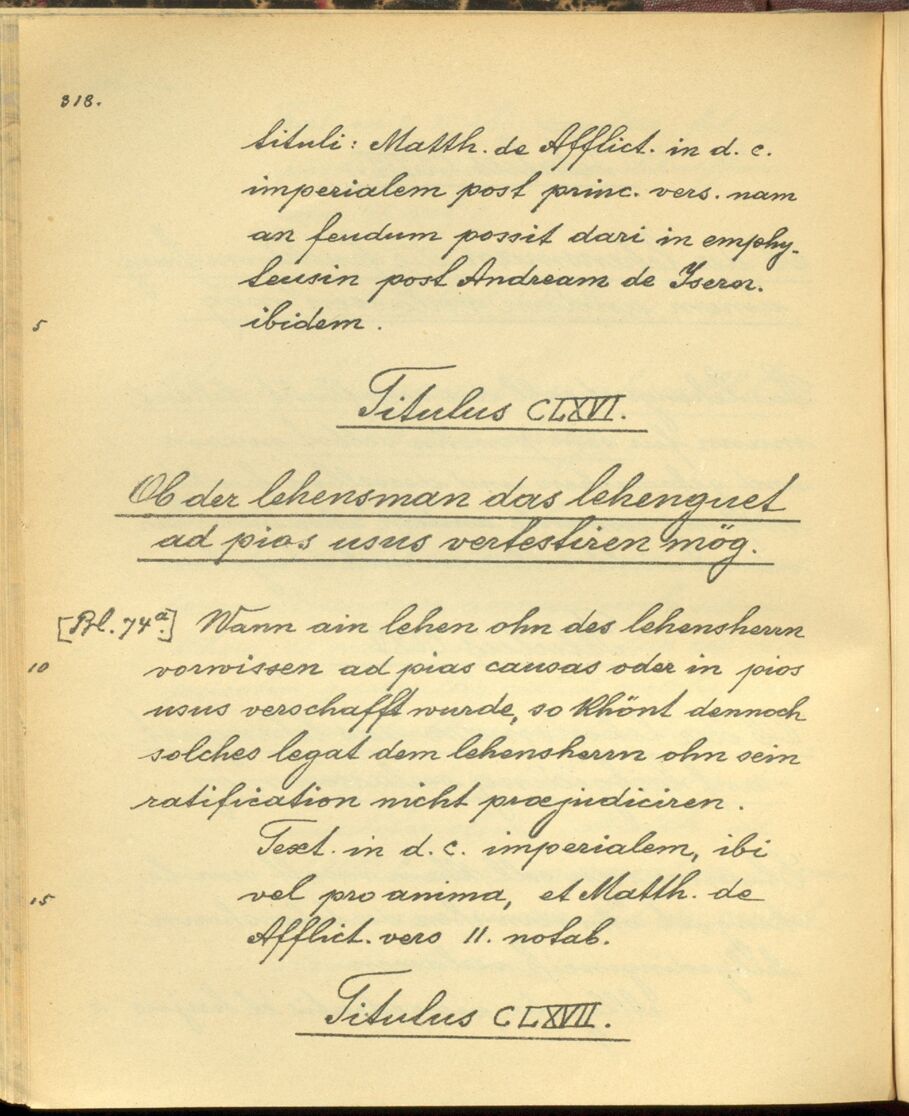 318.
tituli: Matth. de Afflict. in d. c.
imperialem post princ. vers. nam
an feudum possit dari in emphy-
teusin post Andream de Isern.
5 ibidem.
Titulus CLXVI.
Ob der lehensman das lehenguet
ad pios usus vertestiren mög.
[Bl. 74a.] Wann ain lehen ohn des lehensherrn
10 vorwissen ad pias causas oder in pios
usus verschafft wurde, so khönt dennoch
solches legat dem lehensherrn ohn sein
ratification nicht præjudiciren.
Text. in d. c. imperialem, ibi
15 vel pro anima, et Matth. de
Afflict. vers 11. notab.
Titulus CLXVII.